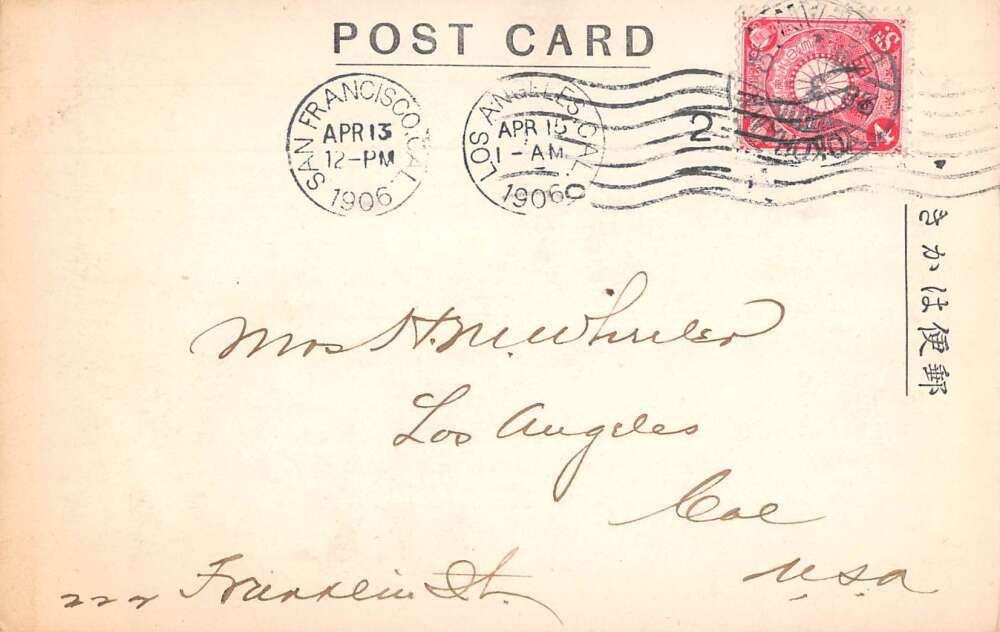 POST CARD
SAN FRANCISCO, CAL.
APR 13
12-PM
1906
LOS ANGELES, CAL.
APR 15
1-AM
1906
2
きかは便郵
Mrs H. N. Wheeler
Los Angeles
Cal
U.S.A
222 Franklin St.